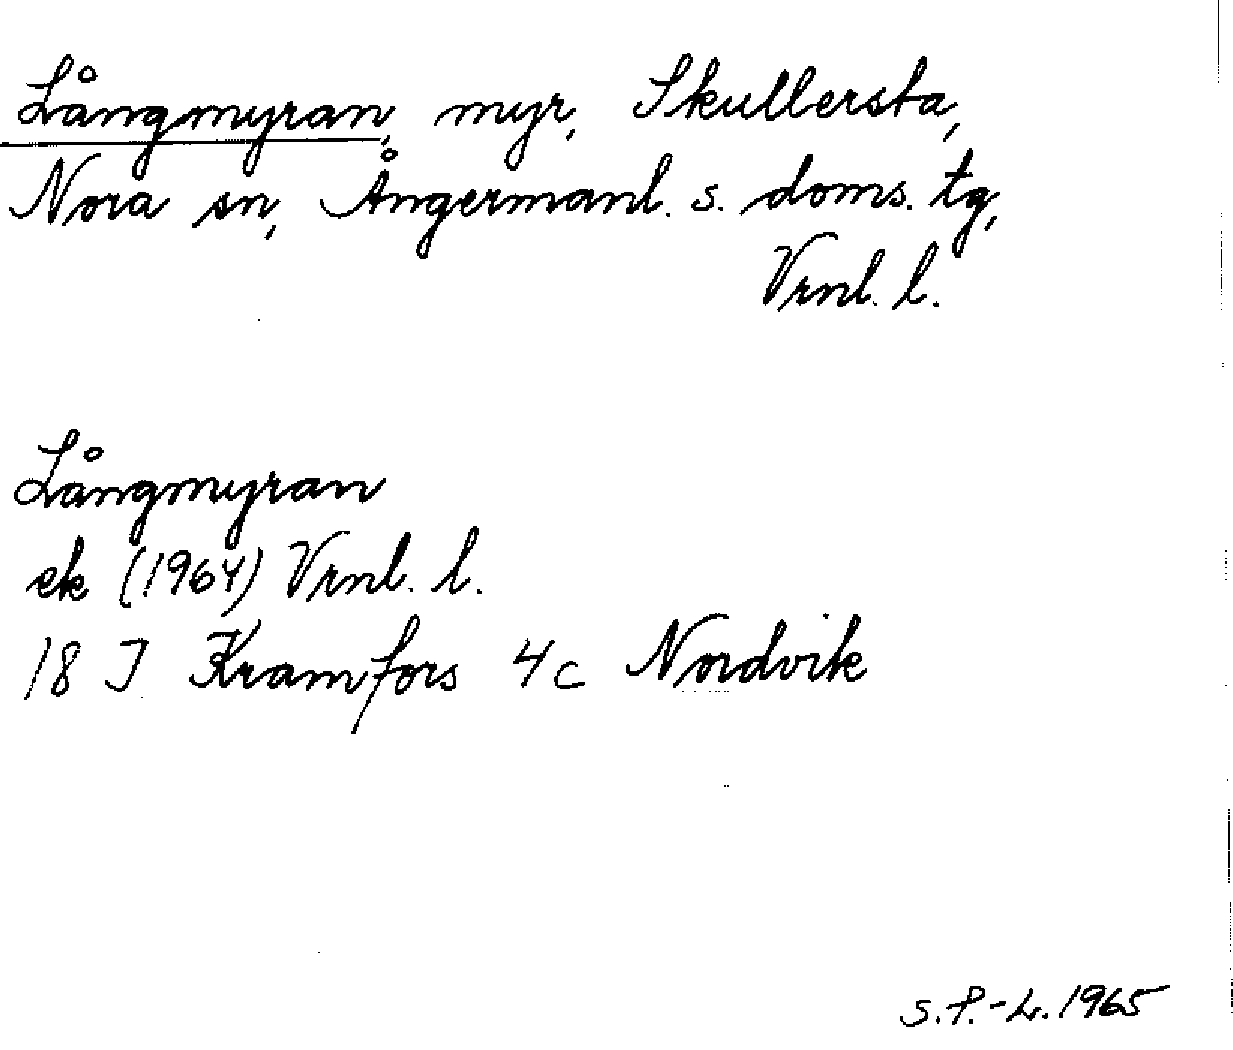 Långmyran, myr, Skullersta,
Nora sn, Ångermanl. s. doms. tg,
Vrnl. l.
Långmyran
ek (1964) Vrnl. l.
18 I Kramfors 4c Nordvik
S.P.-L. 1965